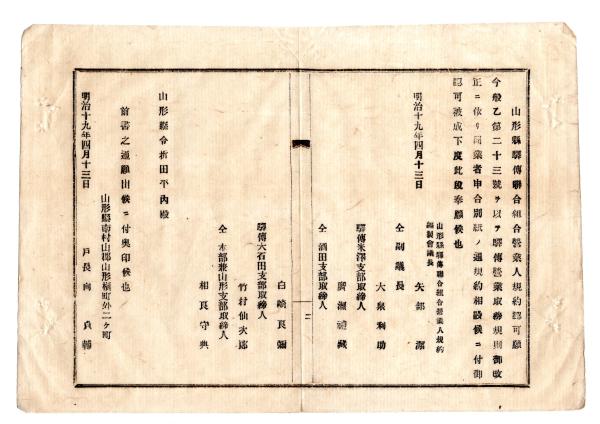 山形縣驛傳聯合組合營業人規約認可願
今般乙第二十三號ヲ以テ驛傳營業取締規則御改
正ニ依リ同業者申合別紙ノ通規約相設候ニ付御
認可被成下度此段奉願候也
山形縣驛傳聯合組合營業人規約
編製會議長
明治十九年四月十三日
矢部 潔
仝 副議長
大泉利助
驛傳米澤支部取締人
廣瀬 藏
仝 酒田支部取締人
二
白崎良彌
驛傳大石田支部取締人
竹村仙次郎
仝 本部兼山形支部取締人
相良守典
山形縣令折田平内殿
前書之通願出候ニ付奥印候也
山形縣南村山郡山形横町外二ヶ町
明治十九年四月十三日
戸長 向 貞輔